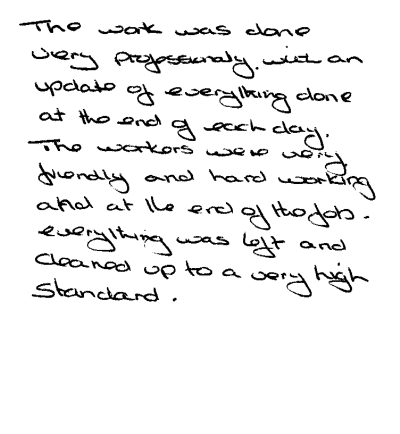 The work was done
very professionaly. with an
update of everything done
at the end of each day.
The workers were very
friendly and hard working
and at the end of the job.
everything was left and
cleaned up to a very high
standard.